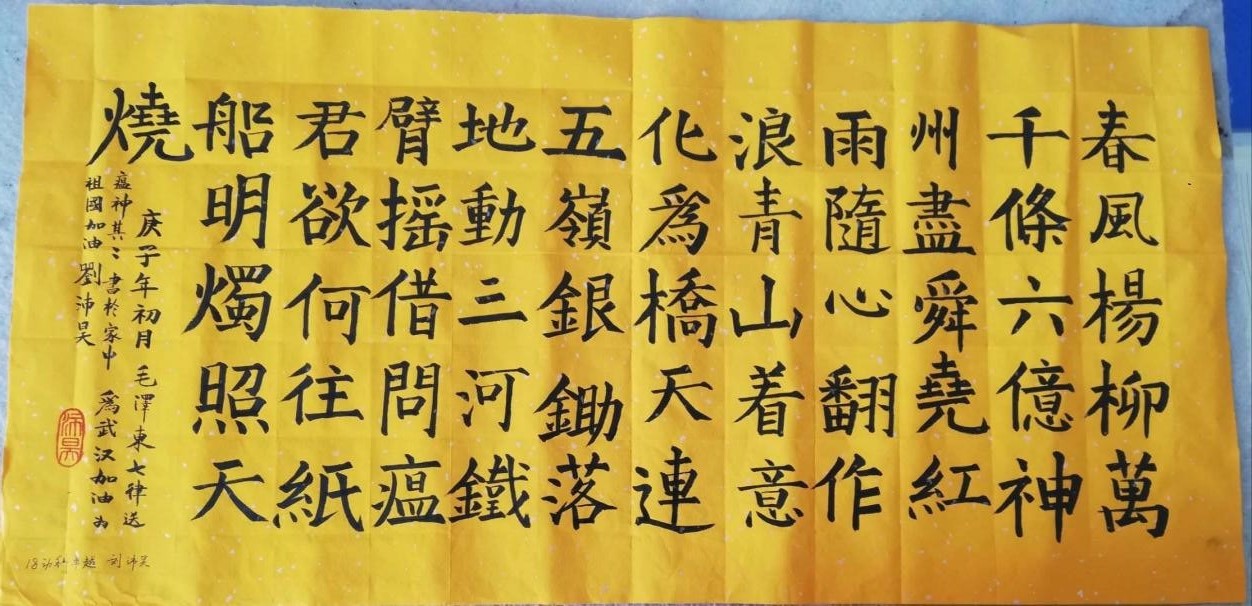 春風楊柳萬
千條六億神
州盡舜堯紅
雨隨心翻作
浪青山着意
化爲橋天連
五嶺銀鋤落
地動三河鐵
臂摇借問瘟
君欲何往紙
船明燭照天
燒
庚子年初月 毛澤東七律送
瘟神其二 書於家中 爲武汉加油 为
祖國加油 劉沛昊
沛昊
18动科卓越 刘沛昊